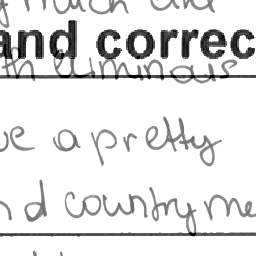 much and
and correc
th luminous
ve a pretty
nd country me